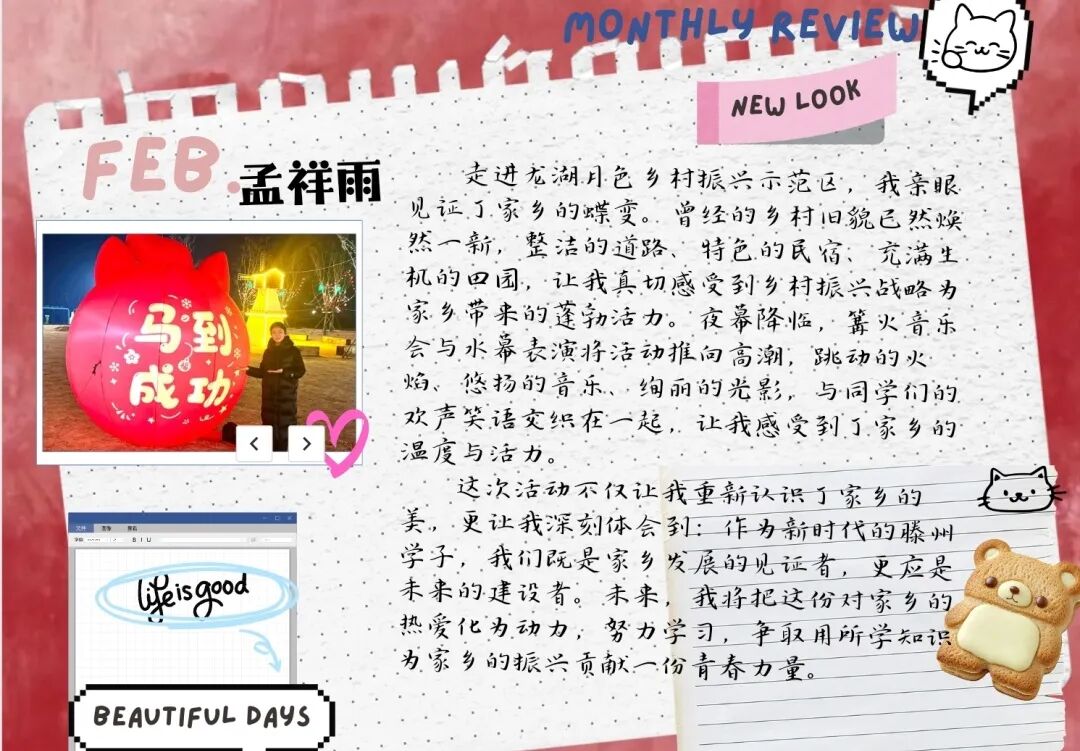 MONTHLY REVIEW
NEW LOOK
FEB.
孟祥雨
走进龙湖月色乡村振兴示范区，我亲眼
见证了家乡的蝶变。曾经的乡村旧貌已然焕
然一新，整洁的道路、特色的民宿、充满生
机的田园，让我真切感受到乡村振兴战略为
家乡带来的蓬勃活力。夜幕降临，篝火音乐
会与水幕表演将活动推向高潮，跳动的火
焰、悠扬的音乐、绚丽的光影，与同学们的
欢声笑语交织在一起，让我感受到了家乡的
温度与活力。
这次活动不仅让我重新认识了家乡的
美，更让我深刻体会到：作为新时代的滕州
学子，我们既是家乡发展的见证者，更应是
未来的建设者。未来，我将把这份对家乡的
热爱化为动力，努力学习，争取用所学知识
为家乡的振兴贡献一份青春力量。
马到
成功
文件
B I U
life is good
BEAUTIFUL DAYS